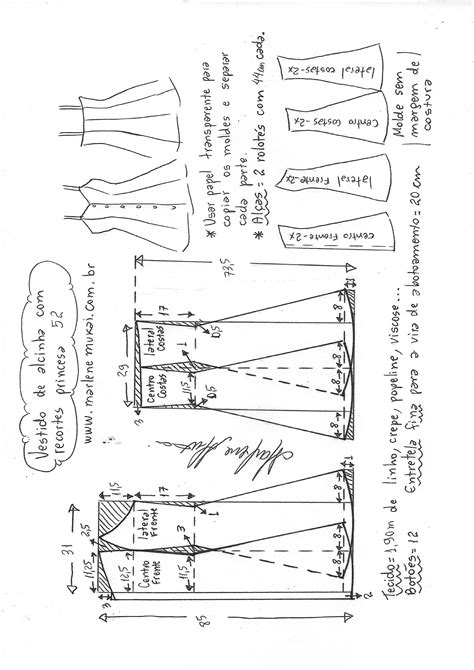 Vestido de alcinha com
recortes princesa 52
www.marlenemukai.com.br
* Usar papel transparente para
copiar os moldes e separar
cada parte.
* Alças = 2 rolotês com 44cm cada.
lateral costas-2x
Centro Costas-2x
lateral Frente-2x
centro Frente-2x
Molde sem
margem de
costura
31
11,25
2,5
11,5
17
3
12,5
Centro
Frente
lateral
Frente
11,5
3
1
85
8
8
8
8
2
1
29
3
17
73,5
Centro
Costas
lateral
Costas
1
0,5
0,5
8
8
8
8
1
Marlene Mukai
Tecido = 1,90m de linho, crepe, popeline, viscose...
Botões = 12 Entretela fina para a vira de abotoamento = 20 cm